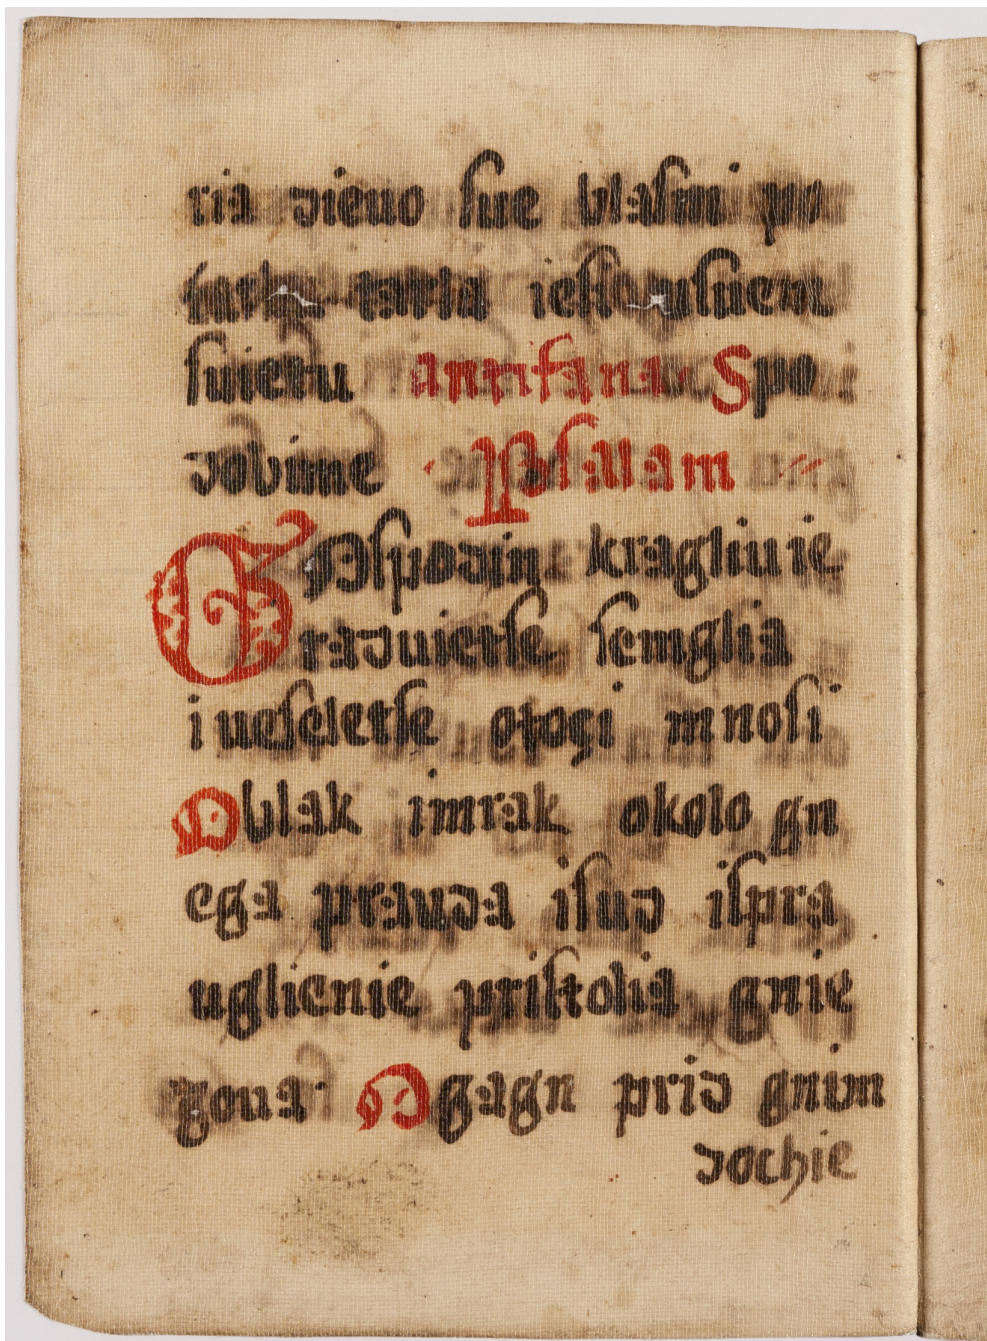 ria dieuo sue vlasmi po
ieste usuem
suietu antifana Spo
dobime Psalam
GOspodin kragliuie
raduietse semglia
i ueseletse otoçi mnosi
Oblak imrak okolo gn
ega prauda isud ispra
uglienie pristolia gnie
goua Ogagn prid gnim
dochie